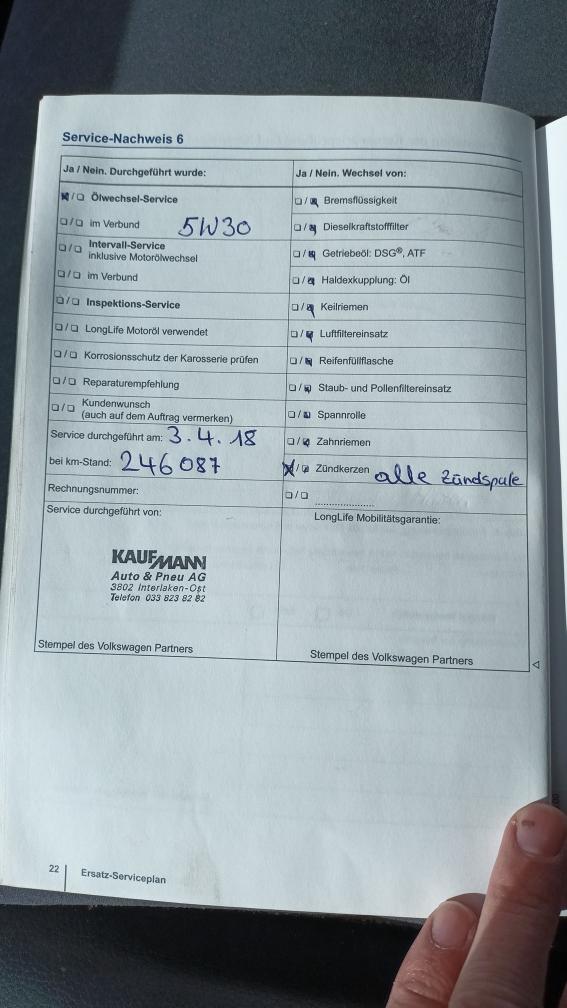 Service-Nachweis 6
Ja / Nein. Durchgeführt wurde:
Ölwechsel-Service
im Verbund 5W30
Intervall-Service
inklusive Motorölwechsel
im Verbund
Inspektions-Service
LongLife Motoröl verwendet
Korrosionsschutz der Karosserie prüfen
Reparaturempfehlung
Kundenwunsch
(auch auf dem Auftrag vermerken)
Service durchgeführt am: 3.4.18
bei km-Stand: 246087
Rechnungsnummer:
Service durchgeführt von:
KAUFMANN
Auto & Pneu AG
3802 Interlaken-Ost
Telefon 033 823 82 82
Stempel des Volkswagen Partners
Ja / Nein. Wechsel von:
Bremsflüssigkeit
Dieselkraftstofffilter
Getriebeöl: DSG®, ATF
Haldexkupplung: Öl
Keilriemen
Luftfiltereinsatz
Reifenfüllflasche
Staub- und Pollenfiltereinsatz
Spannrolle
Zahnriemen
Zündkerzen alle Zündspule
LongLife Mobilitätsgarantie:
Stempel des Volkswagen Partners
22 Ersatz-Serviceplan